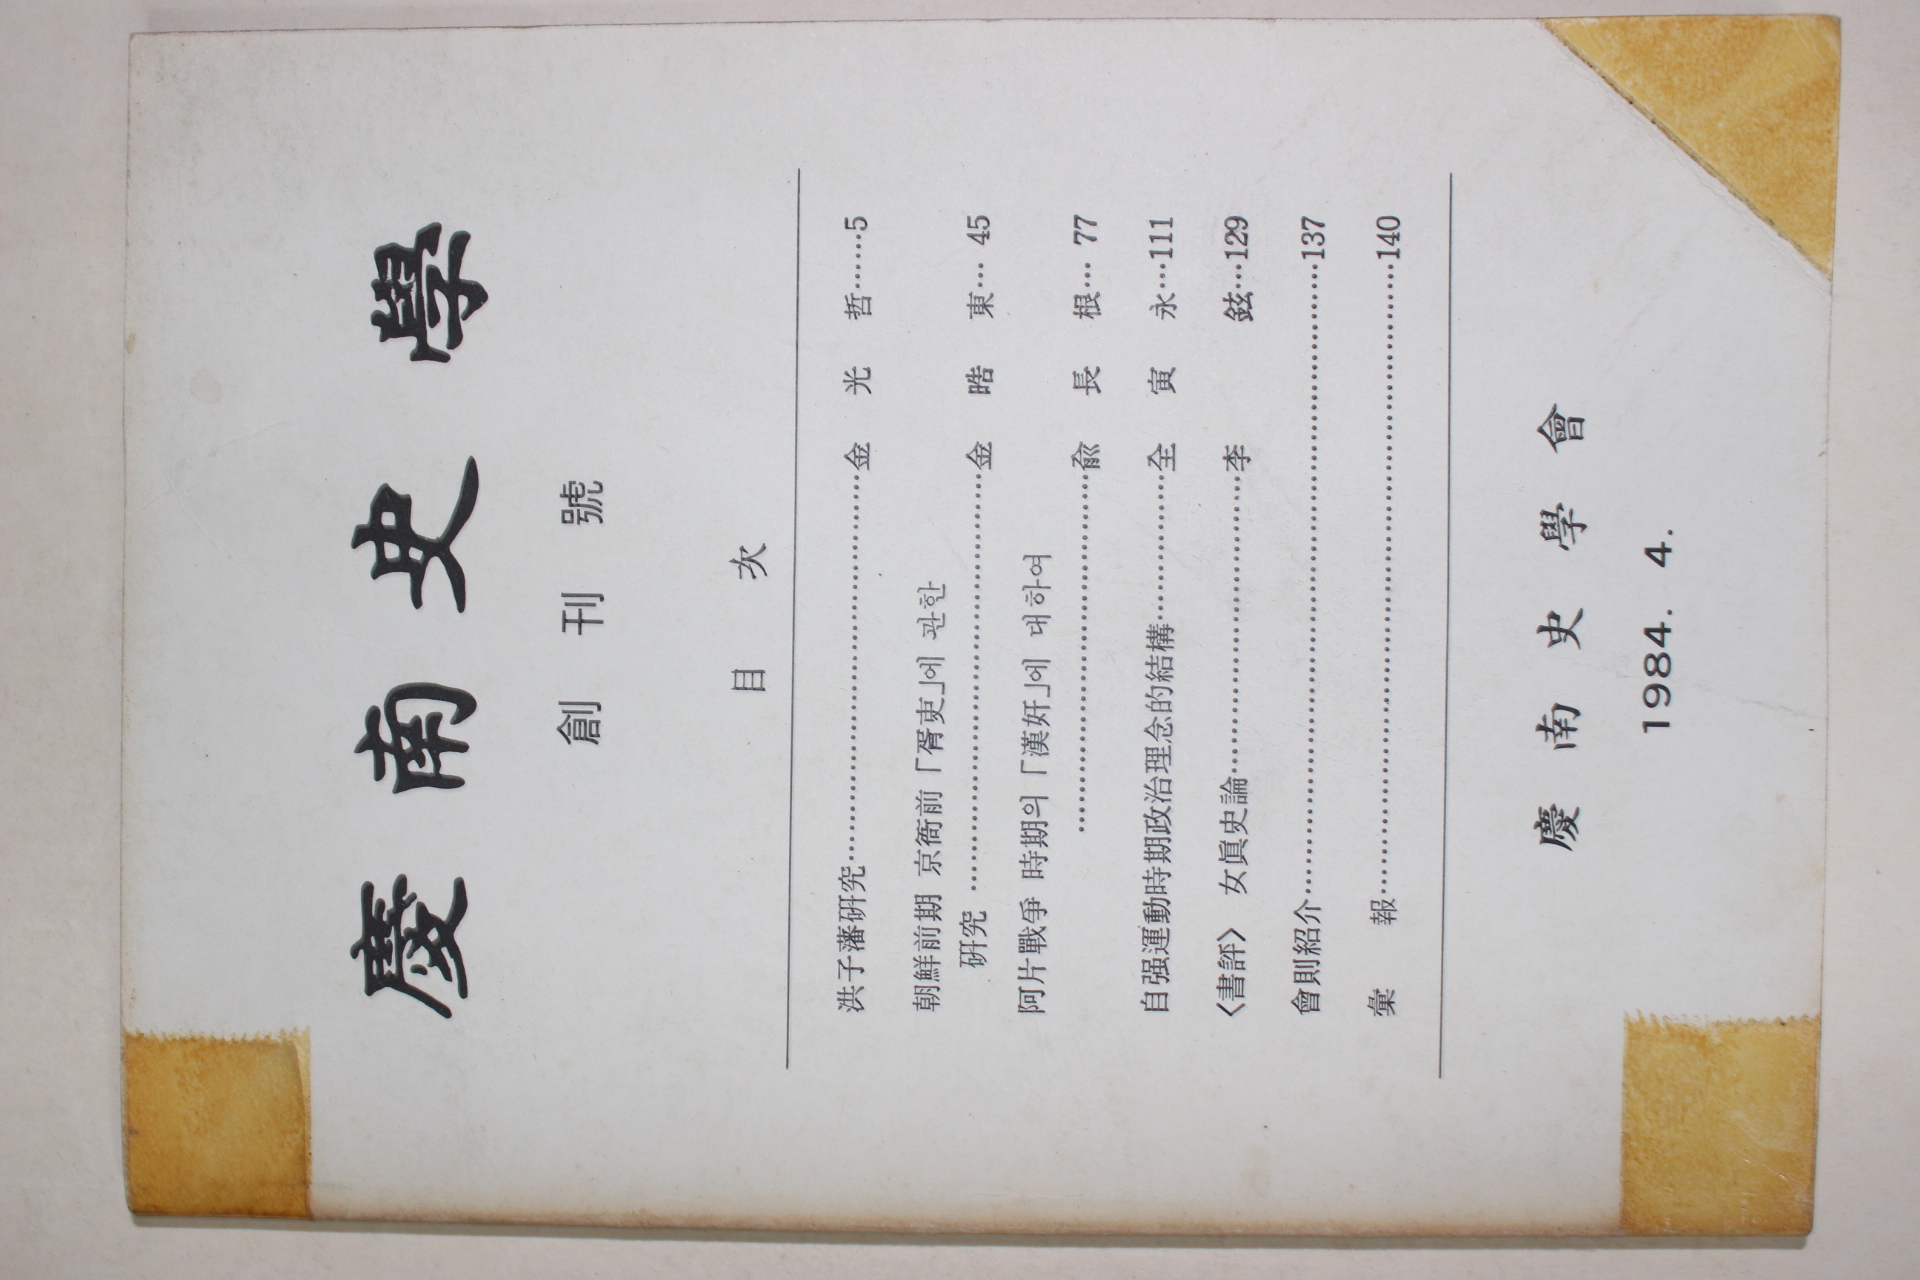 慶南史學
創刊號
目次
洪子藩硏究……………………………金光哲……5
朝鮮前期 京衙前 「胥吏」에 관한
硏究 ……………………………金晧東… 45
阿片戰爭 時期의 「漢奸」에 대하여
……………………………兪長根… 77
自强運動時期政治理念的結構…………全寅永…111
〈書評〉 女眞史論……………………李鉉…129
會則紹介………………………………………………137
彙報………………………………………………140
慶南史學會
1984. 4.